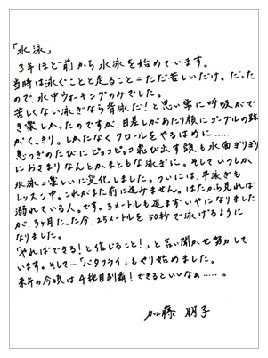 「水泳」
3年ほど前から水泳を始めています。
当時は泳ぐことと走ること=ただ苦しいだけ、だった
ので水中ウォーキングのみでした。
苦しくない泳ぎなら背泳だ!と思い常に呼吸がで
き楽しみ、たのですが日差しがあたり顔にゴーグルの跡
がくっきり。しかたなくクロールをやるはめに……
息つぎのたびにピョコピョコ最も出す頭も水面ぎりぎり
におさまりなんとか、まともな泳ぎに。そしていつしか
水泳=楽しいに変化しました。ついには、平泳ぎも
レッスン中。これがまた前に進みません。はたから見れば
溺れている人。です。3メートルも進まずいやになりました
が3ヶ月たった今25メートルを50秒で泳げるように
なりました。
「やればできる!と信じること!」と言い聞かせ努力して
います。そして…「バタフライ」もやり始めました。
来年の今頃は4種目制覇!できるといいなぁ……。
加藤 明子